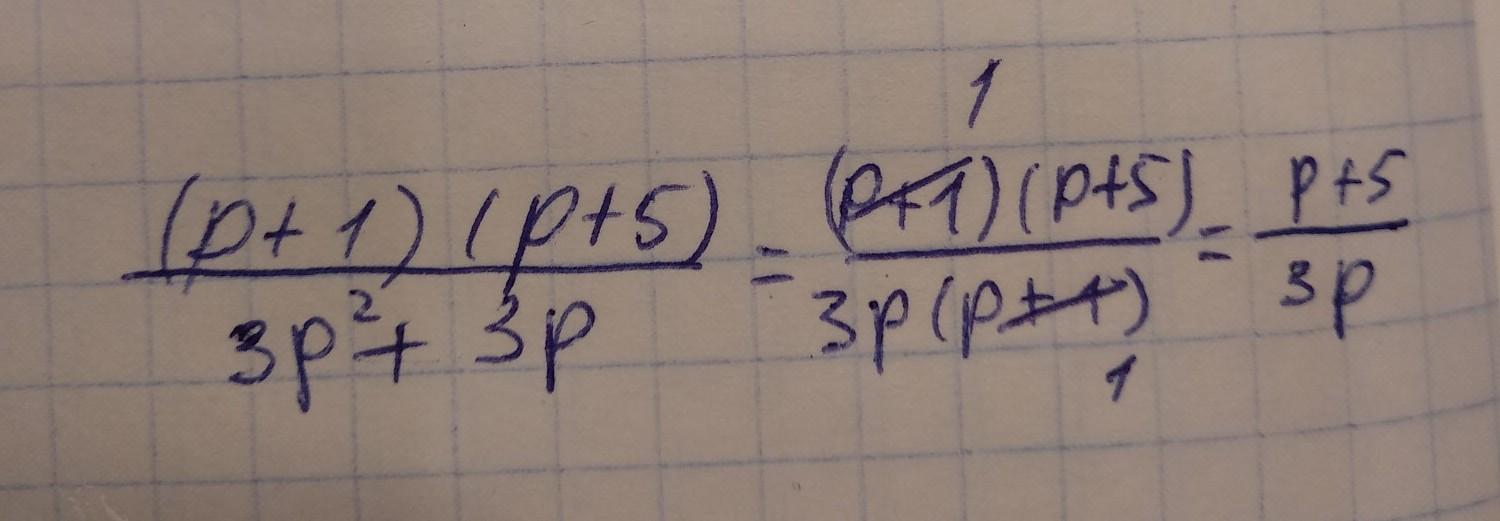 (p+1)(p+5)/(3p²+3p) = 1 (p+1)(p+5)/(3p(p+1)) 1 = (p+5)/(3p)